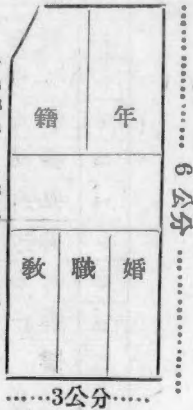 年 籍
婚 職 教
6公分
3公分